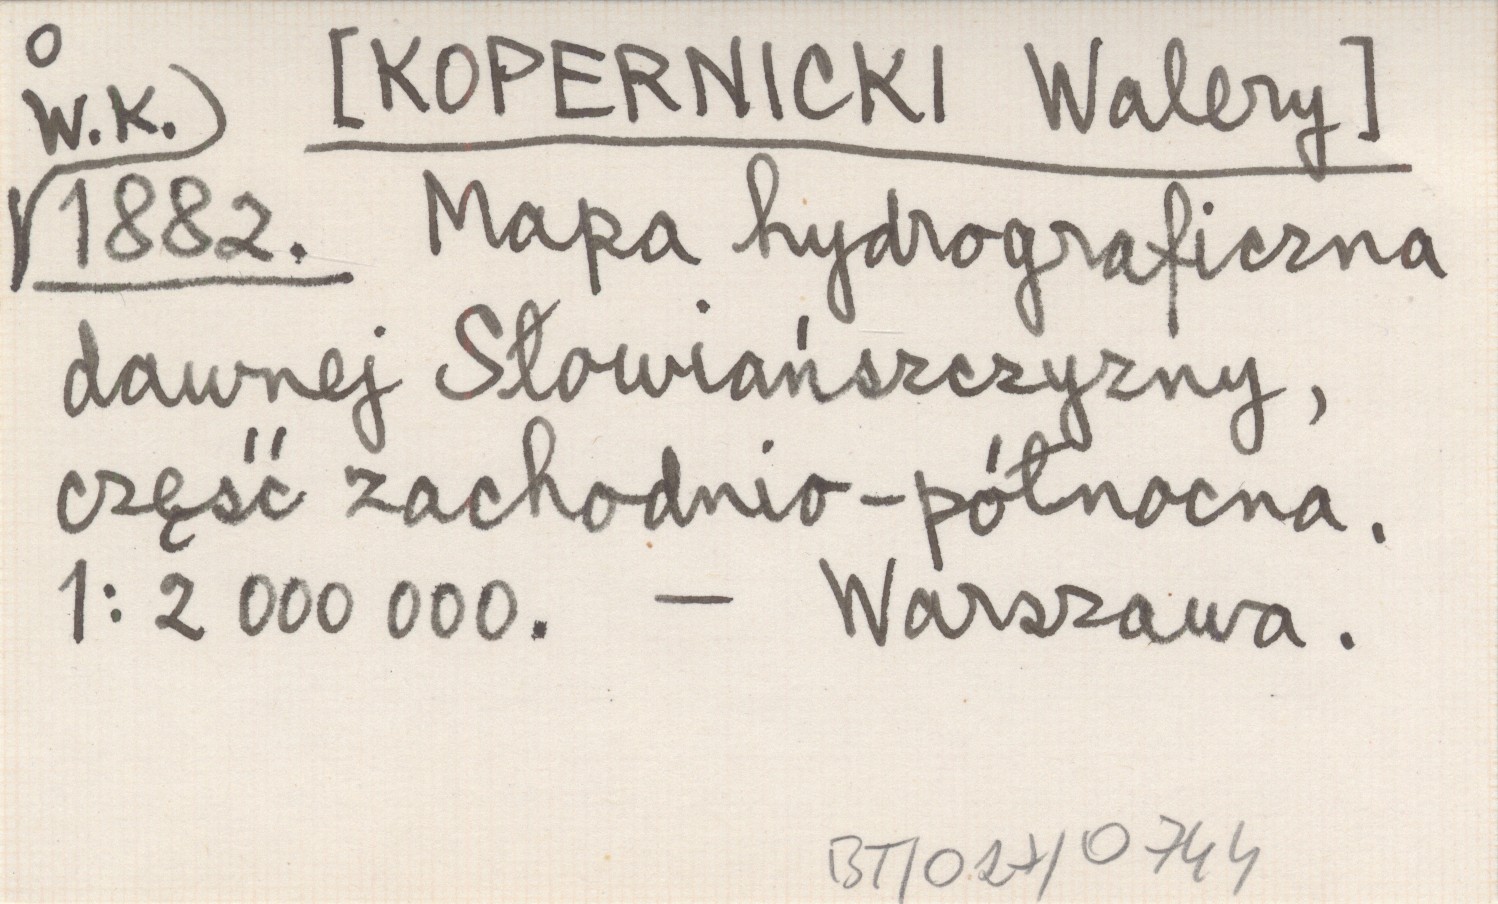 o
W.K.) [KOPERNICKI Walery]
√1882. Mapa hydrograficzna
dawnej Słowiańszczyzny,
część zachodnio-północna.
1: 2 000 000. — Warszawa.
BT/027/0744